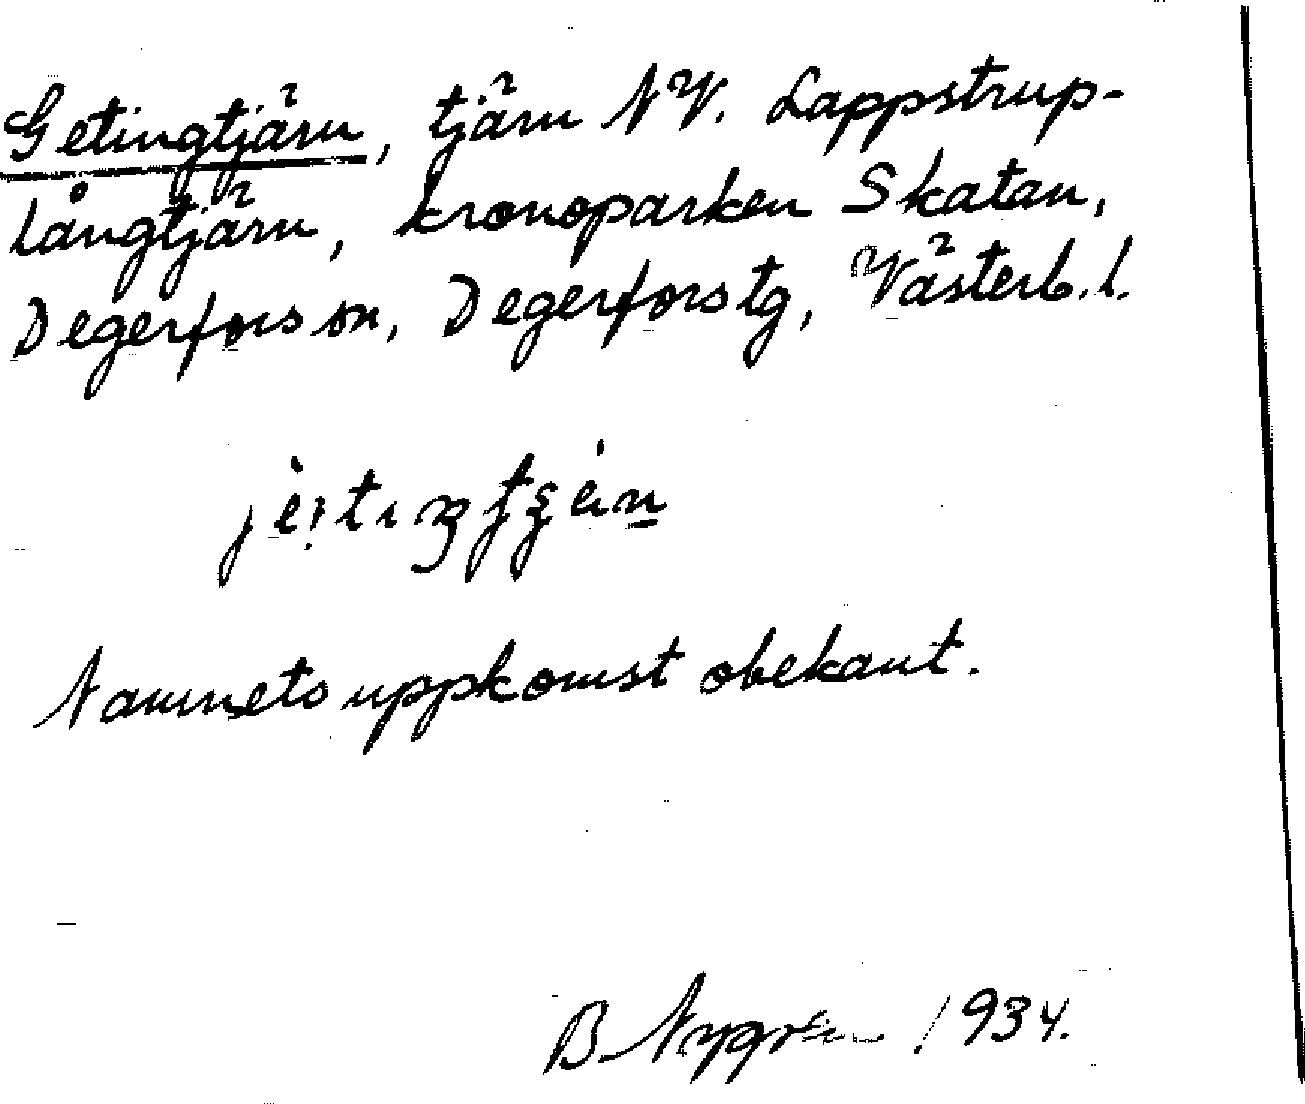 Getingtjärn, tjärn NV. Lappstrup-
långtjärn, kronoparken Skatan,
Degerfors sn, Degerfors tg, Västerb. l.
Namnets uppkomst obekant.
B. Nygren 1934.